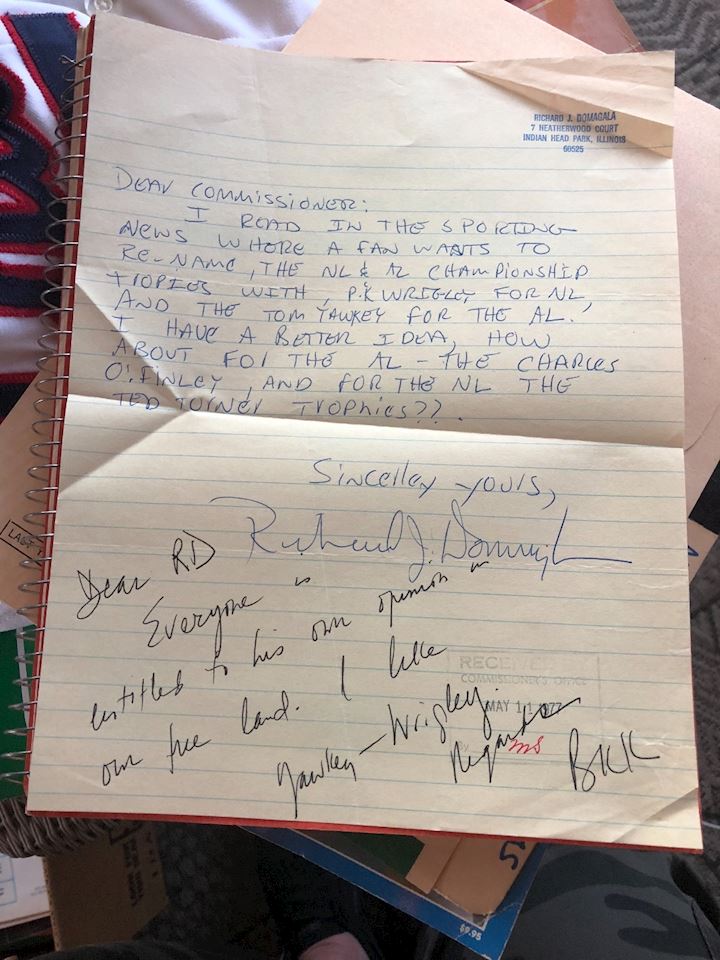 RICHARD J. DOMAGALA
7 HEATHERWOOD COURT
INDIAN HEAD PARK, ILLINOIS
60525
DEAR COMMISSIONER:
I READ IN THE SPORTING
NEWS WHERE A FAN WANTS TO
RE-NAME, THE NL & AL CHAMPIONSHIP
TROPIES WITH, P.K WRIGLEY FOR NL,
AND THE TOM YAWKEY FOR THE AL.
I HAVE A BETTER IDEA, HOW
ABOUT FOR THE AL - THE CHARLES
O. FINLEY, AND FOR THE NL THE
TED TURNER TROPHIES??.
SINCELLEY YOURS,
Richard J. Domagala
Dear RD
Everyone is
entitled to his own opinion in
our free land. I like
Yawkey - Wrigley.
Regards
BKK
RECEIVED
COMMISSIONER'S OFFICE
MAY 11 1977
By ms
LAST
$9.95